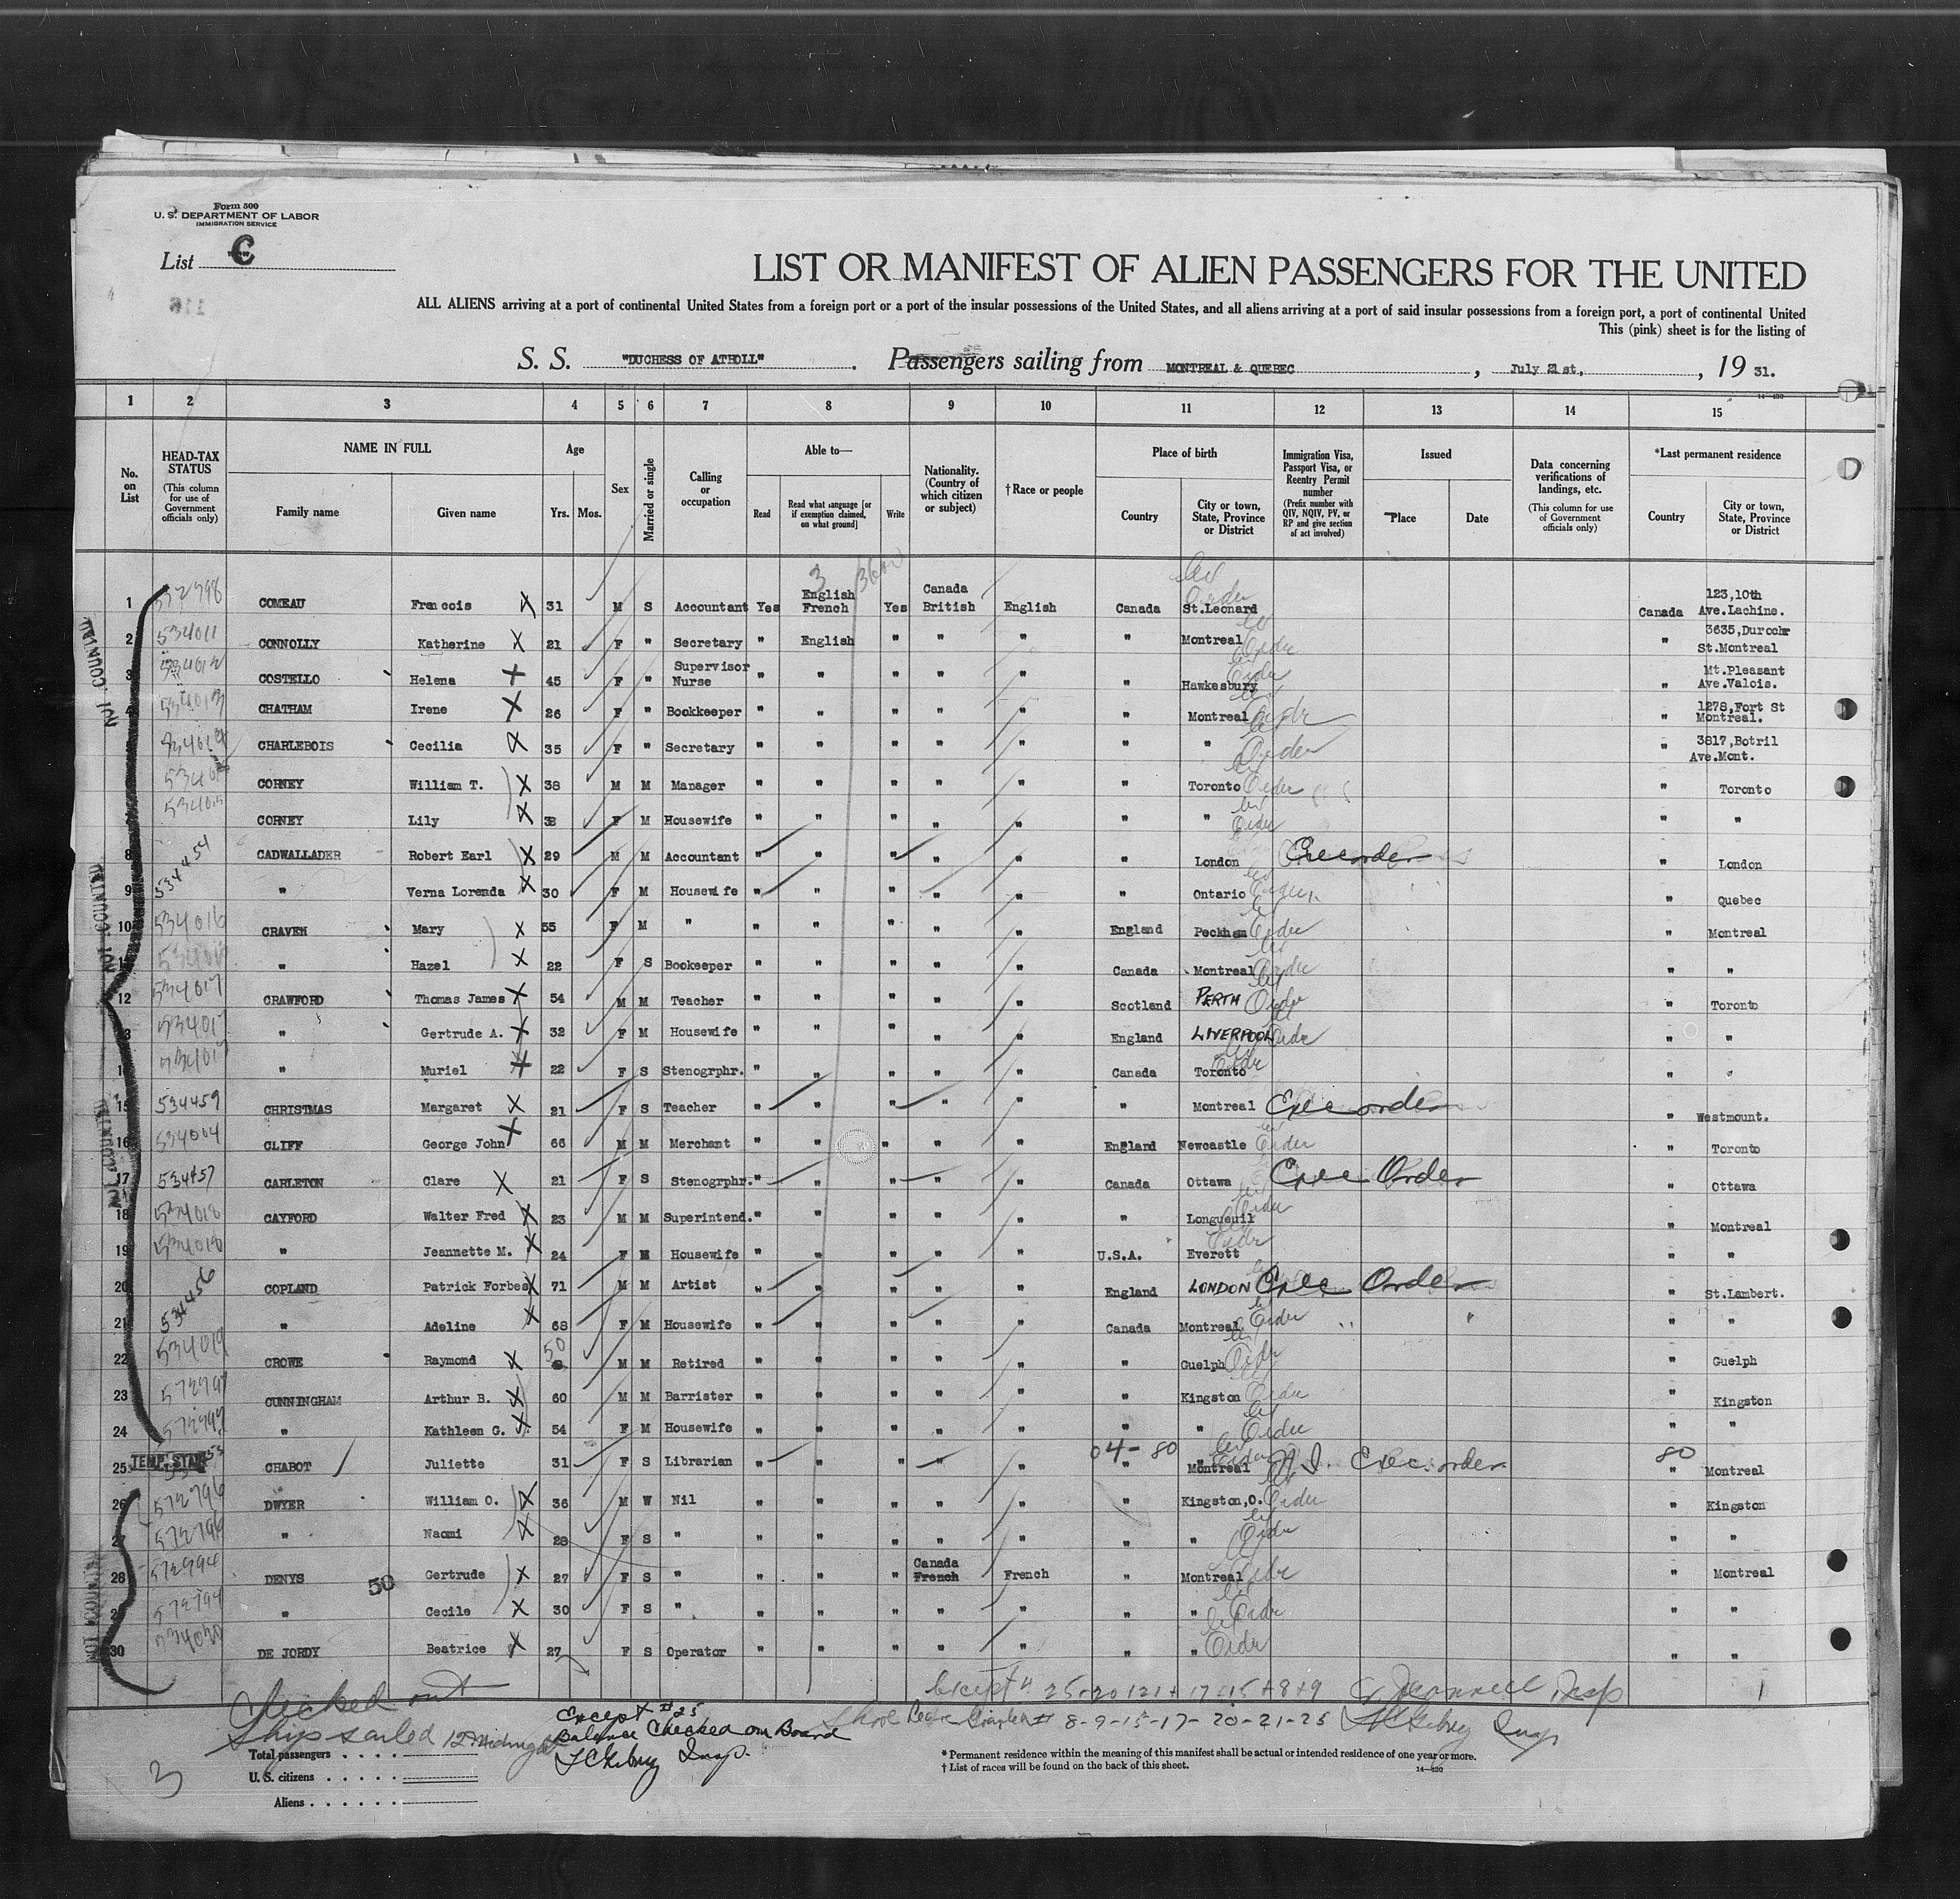 Form 500
U. S. DEPARTMENT OF LABOR
IMMIGRATION SERVICE
List C
LIST OR MANIFEST OF ALIEN PASSENGERS FOR THE UNITED
ALL ALIENS arriving at a port of continental United States from a foreign port or a port of the insular possessions of the United States, and all aliens arriving at a port of said insular possessions from a foreign port, a port of continental United
This (pink) sheet is for the listing of
S. S. "DUCHESS OF ATHOLL" . Passengers sailing from MONTREAL & QUEBEC , July 21st, , 19 31.
1 2 3 4 5 6 7 8 9 10 11 12 13 14 15
No. on List
HEAD-TAX STATUS (This column for use of Government officials only)
NAME IN FULL Family name Given name
Age Yrs. Mos.
Sex
Married or single
Calling or occupation
Able to— Read Read what language [or if exemption claimed, on what ground] Write
Nationality. (Country of which citizen or subject)
† Race or people
Place of birth Country City or town, State, Province or District
Immigration Visa, Passport Visa, or Reentry Permit number (Prefix number with QIV, NQIV, PV, or RP and give section of act involved)
Issued Place Date
Data concerning verifications of landings, etc. (This column for use of Government officials only)
*Last permanent residence Country City or town, State, Province or District
1 572798 COMEAU Francois X 31 M S Accountant Yes English French Yes Canada British English Canada St.Leonard Canada 123,10th Ave.Lachine.
2 534011 CONNOLLY Katherine X 21 F " Secretary " English " " " " Montreal " 3635,Durochr St.Montreal
3 534012 COSTELLO Helena X 45 F " Supervisor Nurse " " " " " " Hawkesbury " Mt.Pleasant Ave.Valois.
4 534013 CHATHAM Irene X 26 F " Bookkeeper " " " " " " Montreal " 1278,Fort St Montreal.
534014 CHARLEBOIS Cecilia X 35 F " Secretary " " " " " " " " 3817,Botril Ave.Mont.
CORNEY William T. X 38 M M Manager " " " " " " Toronto " Toronto
CORNEY Lily X F M Housewife " " " " " " " " "
8 534454 CADWALLADER Robert Earl X 29 M M Accountant " " " " " " London Exec order " London
9 " Verna Lorenda X 30 F M Housewife " " " " " " Ontario " Quebec
10 534016 CRAVEN Mary X 55 F M " " " " " " England Peckham " Montreal
" Hazel X 22 F S Bookeeper " " " " " Canada Montreal " "
12 534017 CRAWFORD Thomas James X 54 M M Teacher " " " " " Scotland PERTH " Toronto
534017 " Gertrude A. X 32 F M Housewife " " " " " England LIVERPOOL " "
534017 " Muriel X 22 F S Stenogrphr. " " " " " Canada Toronto " "
15 534459 CHRISTMAS Margaret X 21 F S Teacher " " " " " " Montreal Exec order " Westmount.
16 534004 CLIFF George John X 66 M M Merchant " " " " " England Newcastle " Toronto
17 534457 CARLETON Clare X 21 F S Stenogrphr. " " " " " Canada Ottawa Exec Order " Ottawa
18 534018 CAYFORD Walter Fred X 23 M M Superintend. " " " " " " Longueuil " Montreal
19 534018 " Jeannette M. X 24 F M Housewife " " " " " U.S.A. Everett " "
20 534456 COPLAND Patrick Forbes X 71 M M Artist " " " " " England LONDON Exec Order " St.Lambert.
21 " Adeline X 68 F M Housewife " " " " " Canada Montreal " "
22 534019 CROWE Raymond X 50 M M Retired " " " " " " Guelph " Guelph
23 572797 CUNNINGHAM Arthur B. X 60 M M Barrister " " " " " " Kingston " Kingston
24 572797 " Kathleen G. X 54 F M Housewife " " " " " " " " "
25 TEMP. STAY CHABOT Juliette 31 F S Librarian " " " " " 04-80 " Montreal Exec. order 80 " Montreal
26 572796 DWYER William O. X 36 M W Nil " " " " " " Kingston,O. " Kingston
27 572796 " Naomi X 28 F S " " " " " " " " " "
28 572794 DENYS 50 Gertrude X 27 F S " " " " Canada French French " Montreal " Montreal
572794 " Cecile X 30 F S " " " " " " " " " "
30 534020 DE JORDY Beatrice X 27 F S Operator " " " " " " " " "
NOT COUNTED
NOT COUNTED
NOT COUNTED
NOT COUNTED
Checked out
Ship sailed 12 Midnight
Except #25
Balance Checked on Board
Insp.
Except # 25+20+21+17+15+8+9 Insp
Shore Leave 8-9-15-17-20-21-25 Insp
Total passengers
U. S. citizens
Aliens
3
* Permanent residence within the meaning of this manifest shall be actual or intended residence of one year or more.
† List of races will be found on the back of this sheet.
14—430